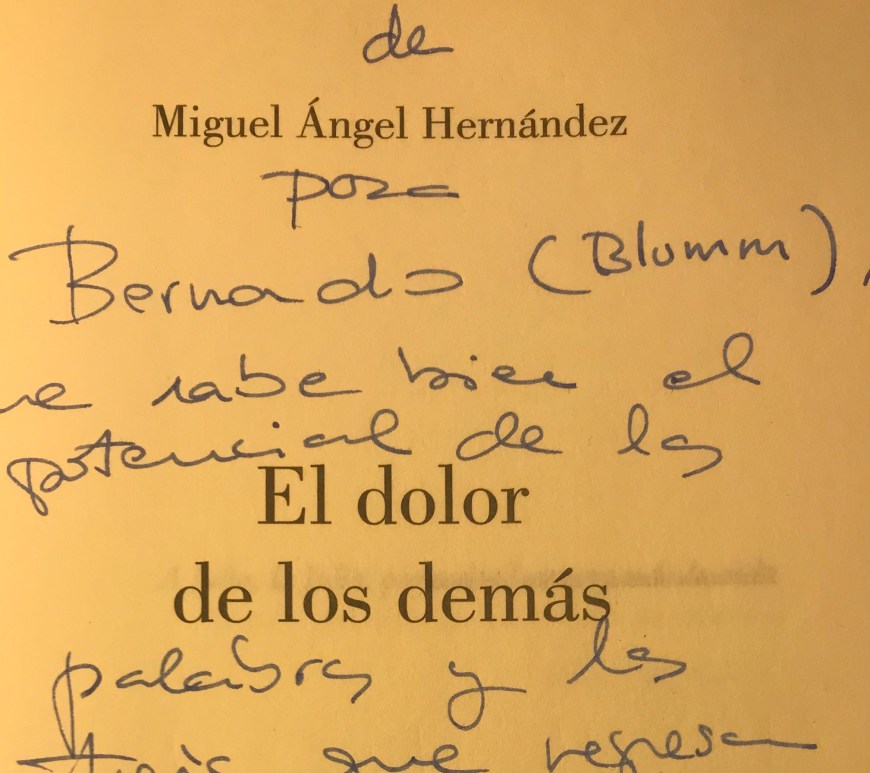 de
Miguel Ángel Hernández
para
Bernardo (Blumm),
sabe bien el
potencial de las
El dolor
de los demás
palabras y las
que regresan